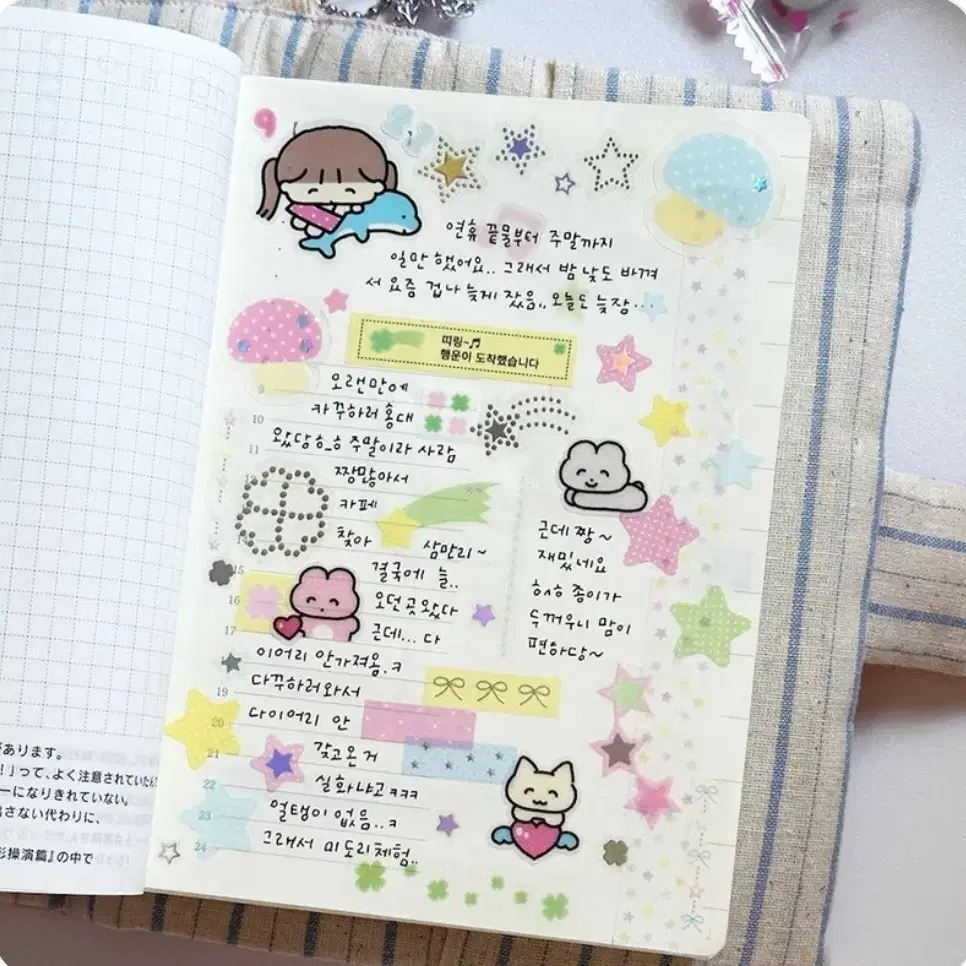 9
21
연휴 끝물부터 주말까지
일만 했어요.. 그래서 밤 낮도 바껴
서 요즘 겁나 늦게 잤음.. 오늘도 늦잠...
띠링~♬
행운이 도착했습니다
9
오랜만에
10
카꾸하러 홍대
11
왔당ㅎ_ㅎ 주말이라 사람
짱많아서
카페
찾아 삼만리~
14
15
결국에 늘..
16
오던 곳 왔다
17
근데... 다
이어리 안가져옴.ㅋ
19
다꾸하러와서
20
다이어리 안
21
갖고온 거
22
실화냐고ㅋㅋㅋ
23
얼탱이 없음..ㅋ
24
그래서 미도리체험..
근데 짱~
재밌네요
ㅎㅅㅎ 종이가
두꺼우니 맘이
편하당~
があります。
!」って、よく注意されていた
ーになりきれていない。
る代わりに、
形操演篇』の中で